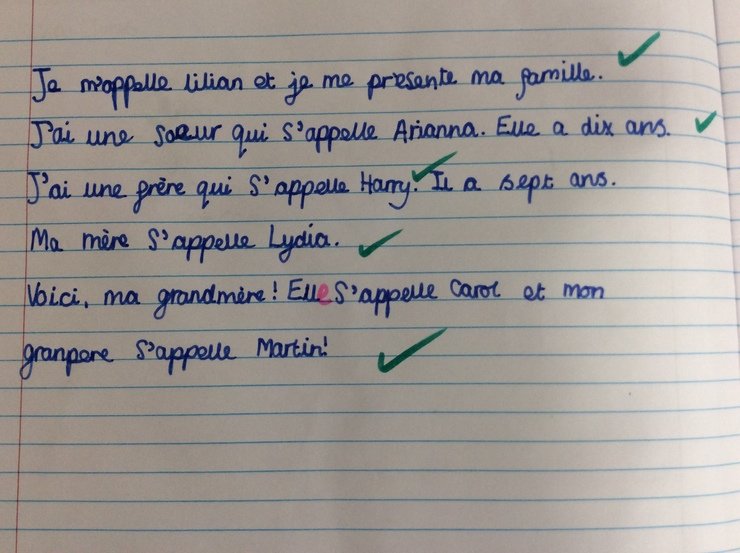 Je m'appelle Lilian et je me présente ma famille.
J'ai une soeur qui s'appelle Arianna. Elle a dix ans.
J'ai une frère qui s'appelle Harry. Il a sept ans.
Ma mère s'appelle Lydia.
Voici, ma grandmère! Elle s'appelle Carol et mon
granpere s'appelle Martin!